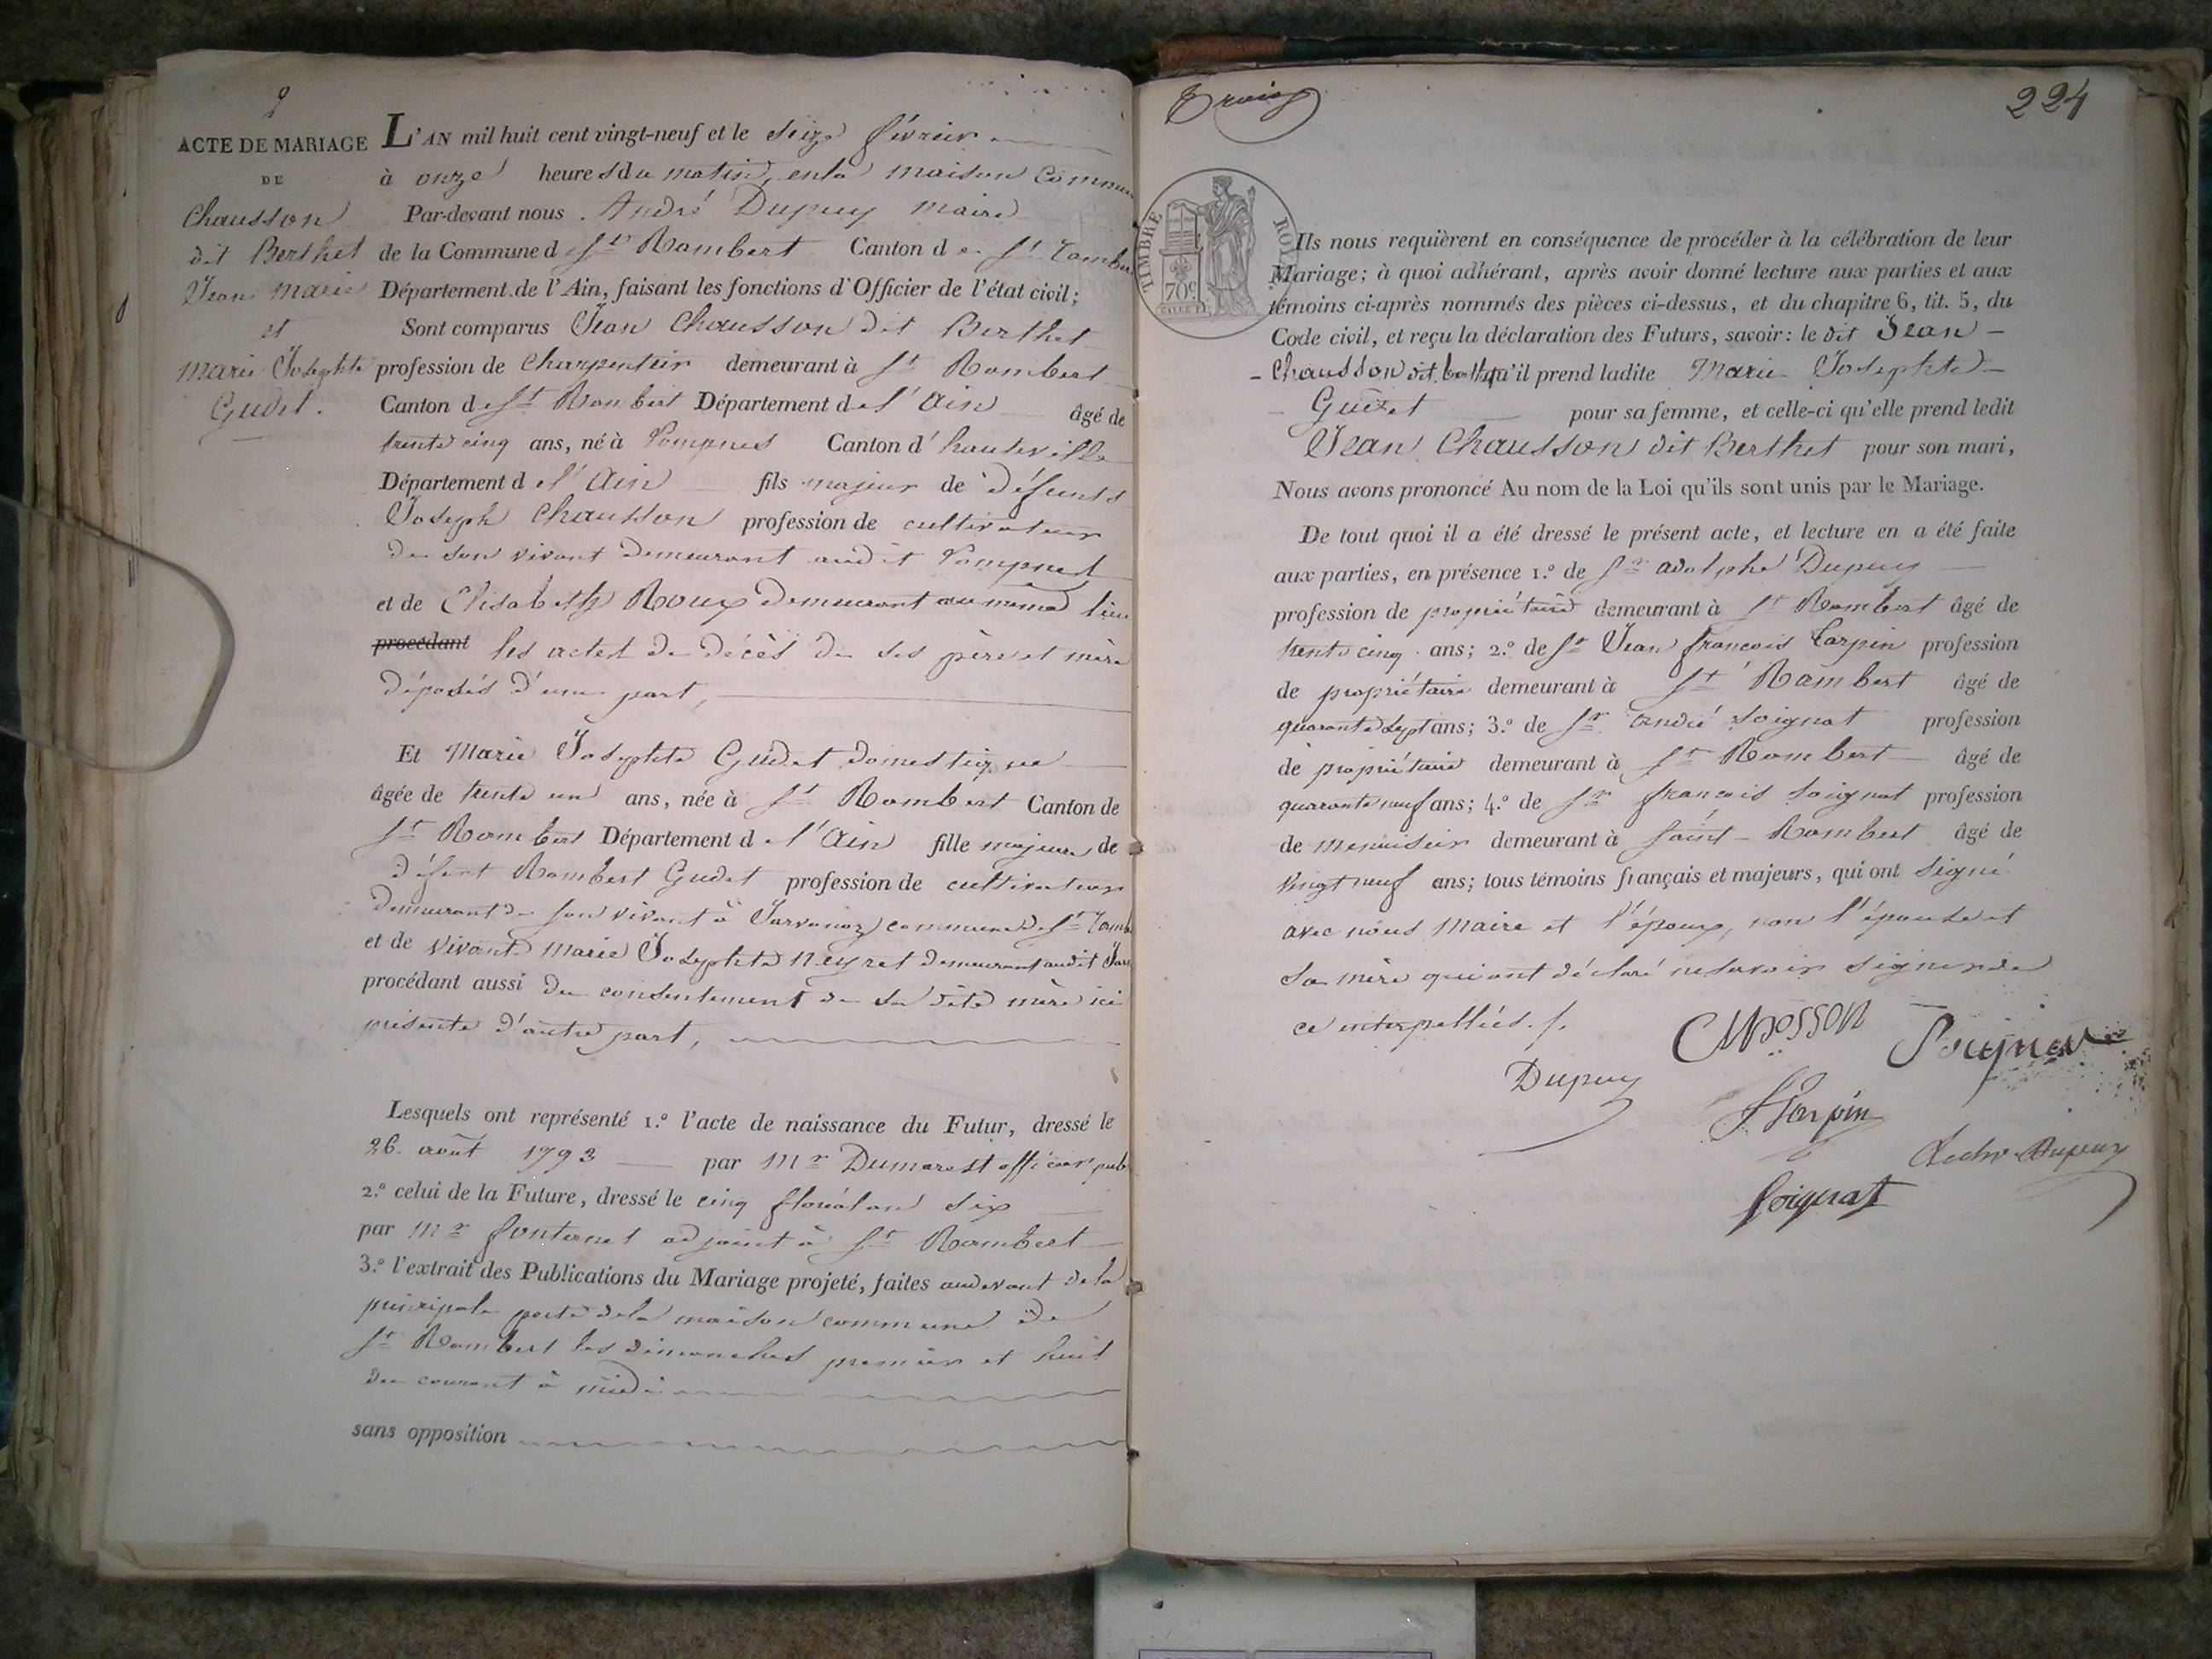 2
ACTE DE MARIAGE
DE
Chausson
dit Berthet
Jean Marie
et
Marie Josephte
Gudet.
L'AN mil huit cent vingt-neuf et le seize février
à onze heures du matin, en la maison Commune
Par-devant nous André Dupuy maire
de la Commune d St Rambert Canton de St Ramb
Département de l'Ain, faisant les fonctions d'Officier de l'état civil;
Sont comparus Jean Chausson dit Berthet
profession de Charpentier demeurant à St Rambert
Canton de St Rambert Département de l'Ain âgé de
trente cinq ans, né à Lompnes Canton d'hauteville
Département de l'Ain fils majeur de défunts
Joseph Chausson profession de cultivateur
de son vivant demeurant audit Lompnes
et de Elisabeth Roux demeurant au même lieu
procédant les actes de décès de ses père et mère
déposés d'une part,
Et Marie Josephte Gudet domestique
âgée de trente un ans, née à St Rambert Canton de
St Rambert Département de l'Ain fille majeure de
défunt Rambert Gudet profession de cultivateur
demeurant de son vivant à Javornoz commune de St Ramb
et de vivante Marie Josephte Neyret demeurant audit Jav
procédant aussi du consentement de sa dite mère ici
présente d'autre part,
Lesquels ont représenté 1.º l'acte de naissance du Futur, dressé le
26. août 1793 par Mr Dumarest officier pub
2.º celui de la Future, dressé le cinq floréal an six
par Mr fontanet adjoint à St Rambert
3.º l'extrait des Publications du Mariage projeté, faites audevant de la
principale porte de la maison commune de
St Rambert les dimanches premier et huit
du courant à midi
sans opposition
Trois
224
TIMBRE ROYAL
70c
Ils nous requièrent en conséquence de procéder à la célébration de leur
Mariage; à quoi adhérant, après avoir donné lecture aux parties et aux
témoins ci-après nommés des pièces ci-dessus, et du chapitre 6, tit. 5, du
Code civil, et reçu la déclaration des Futurs, savoir: le dit Jean
Chausson dit berthet qu'il prend ladite Marie Josephte
Gudet pour sa femme, et celle-ci qu'elle prend ledit
Jean Chausson dit Berthet pour son mari,
Nous avons prononcé Au nom de la Loi qu'ils sont unis par le Mariage.
De tout quoi il a été dressé le présent acte, et lecture en a été faite
aux parties, en présence 1.º de Sr adolphe Dupuy
profession de propriétaire demeurant à St Rambert âgé de
trente cinq ans; 2.º de Sr Jean françois Tarpin profession
de propriétaire demeurant à St Rambert âgé de
quarante sept ans; 3.º de Sr andré Soignat profession
de propriétaire demeurant à St Rambert âgé de
quarante neuf ans; 4.º de Sr françois Soignat profession
de menuisier demeurant à Saint Rambert âgé de
vingt neuf ans; tous témoins français et majeurs, qui ont signé
avec nous Maire et l'époux, non l'épouse et
sa mère qui ont déclaré ne savoir signer de
ce interpellées./.
Dupuy
Tarpin
Dupuy
Soignat